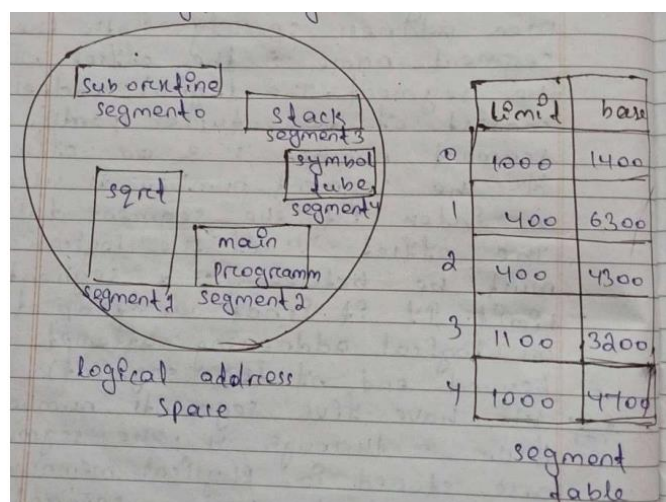 suborxtine
segment0
stack
segment3
symbol
tube
segment4
sqrt
segment1
main
programm
segment2
logical address
space
limit base
0 1000 1400
1 400 6300
2 400 4300
3 1100 3200
4 1000 4700
segment
table